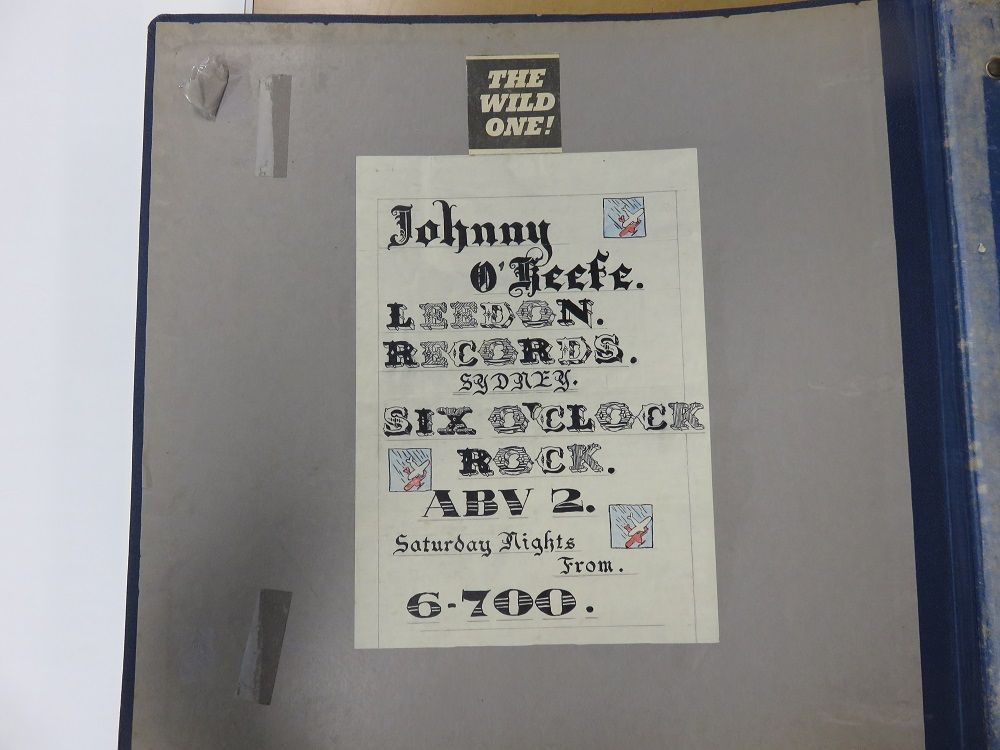 THE
WILD
ONE!
Johnny
O'Keefe.
LEEDON.
RECORDS.
SYDNEY.
SIX O'CLOCK
ROCK.
ABV 2.
Saturday Nights
From.
6-700.